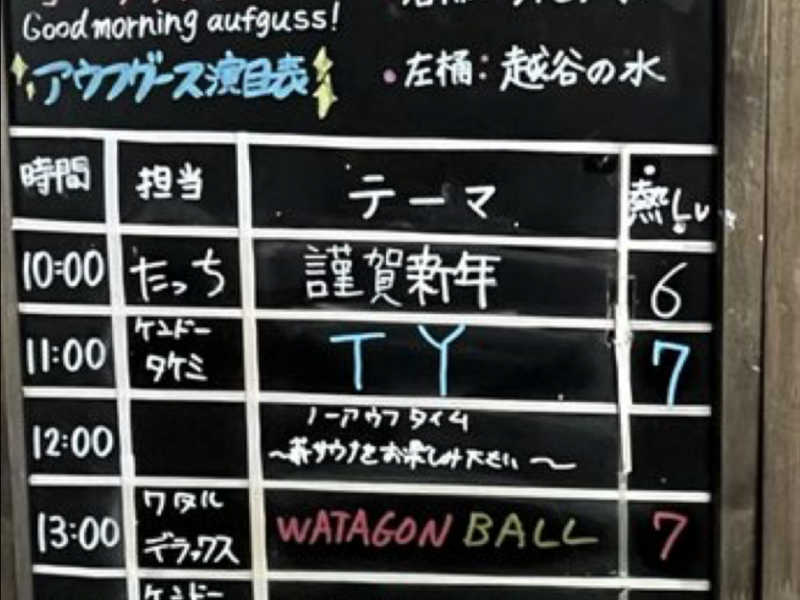 Good morning aufguss!
アウフグース演目表
・左桶：越谷の水
時間 担当 テーマ 熱Lv
10:00 たっち 謹賀新年 6
11:00 ケンドー タケミ TY 7
12:00 ノーアウフタイム
～薪サウナをお楽しみ下さい～
13:00 ワタル デラックス WATAGON BALL 7
ケンドー